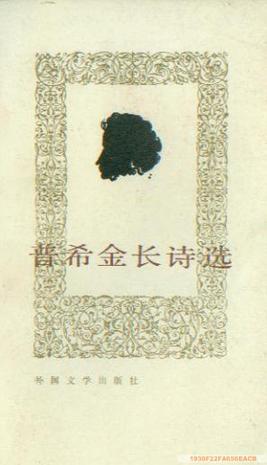 普希金长诗选
外国文学出版社
1930F22FA656EACB